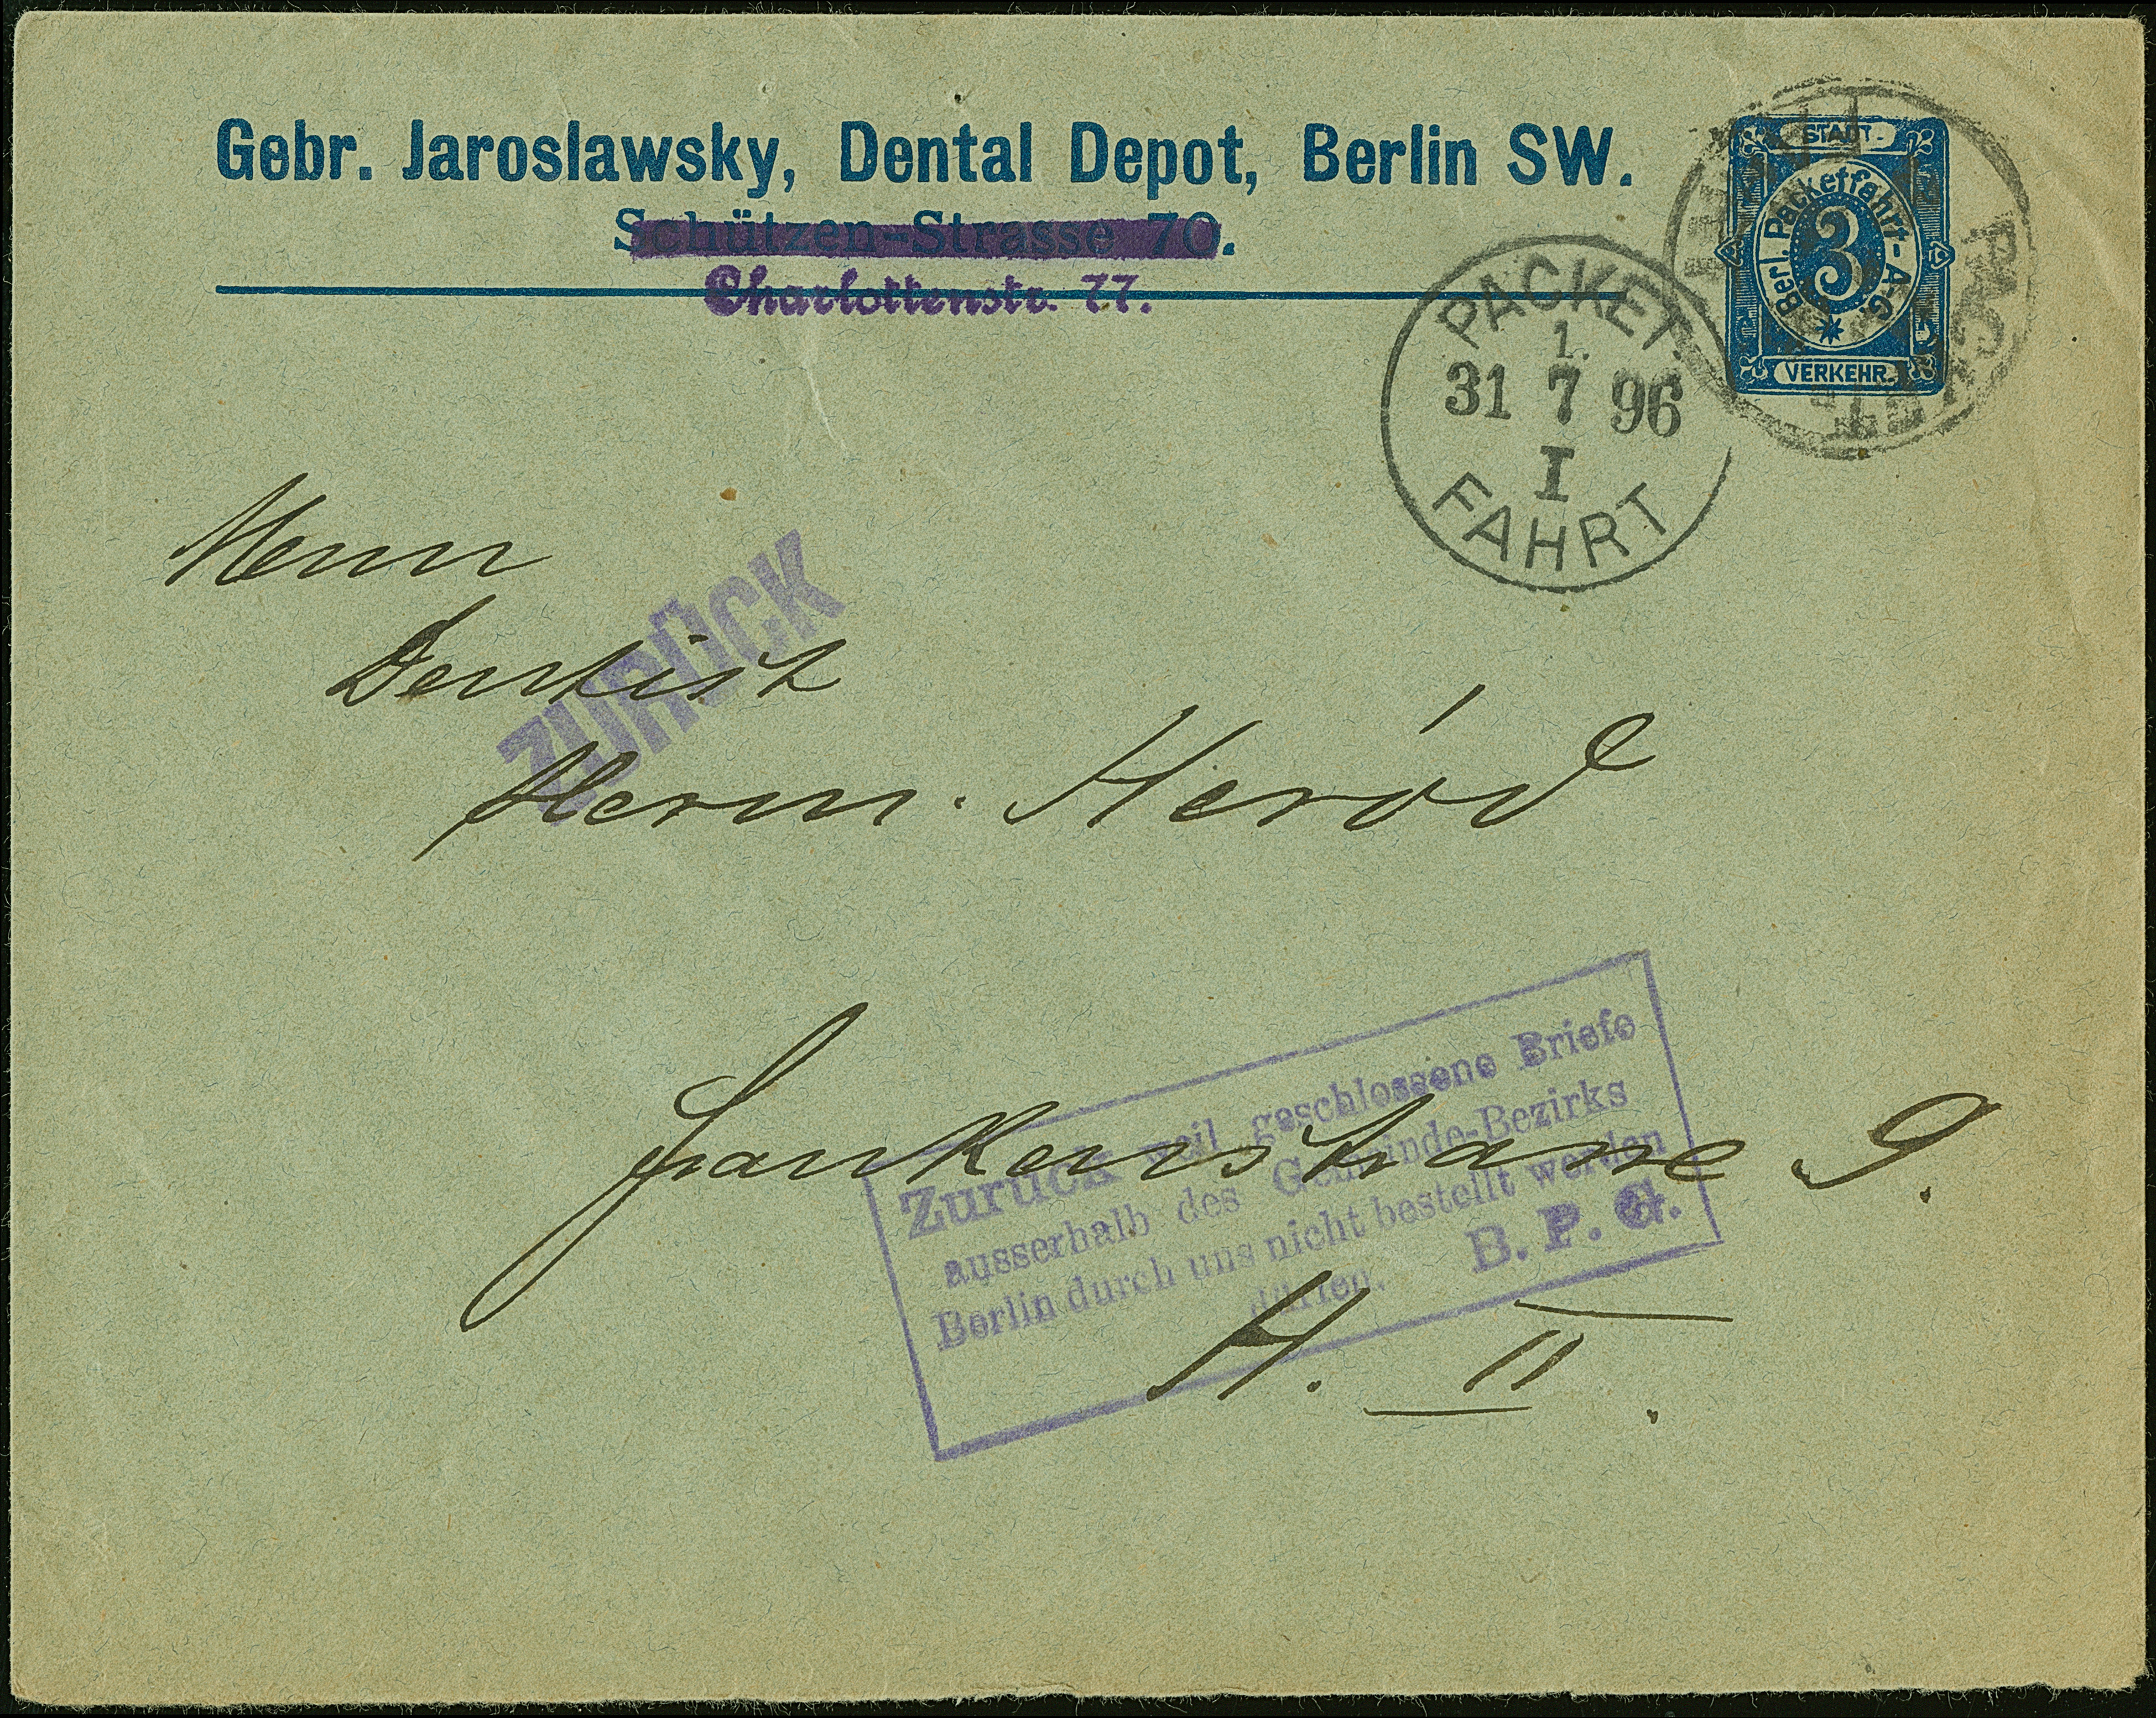 Gebr. Jaroslawsky, Dental Depot, Berlin SW.
Schützen-Strasse 70.
Charlottenstr. 77.
STADT-
Berl. Packetfahrt-A-G.
3
VERKEHR.
PACKET.
1.
31 7 96
I
FAHRT
Herrn
Dentist
ZURÜCK
Herm. Heród
Frankenstrasse 9.
H. II.
Zurück weil geschlossene Briefe
ausserhalb des Gemeinde-Bezirks
Berlin durch uns nicht bestellt werden
dürfen. B. P. G.